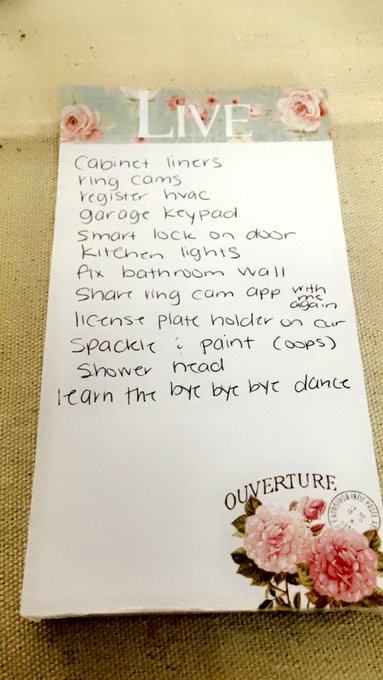 LIVE
Cabinet liners
ring cams
register hvac
garage keypad
Smart lock on door
Kitchen lights
fix bathroom wall
Share ring cam app with me again
license plate holder on car
Spackle & paint (oops)
Shower head
learn the bye bye bye dance
OUVERTURE